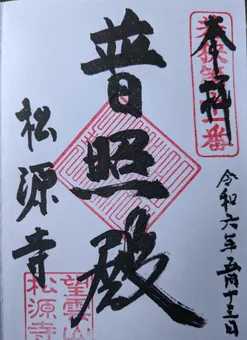 奉拝
普照殿
松源寺
令和六年五月十三日
望雲山
松源寺